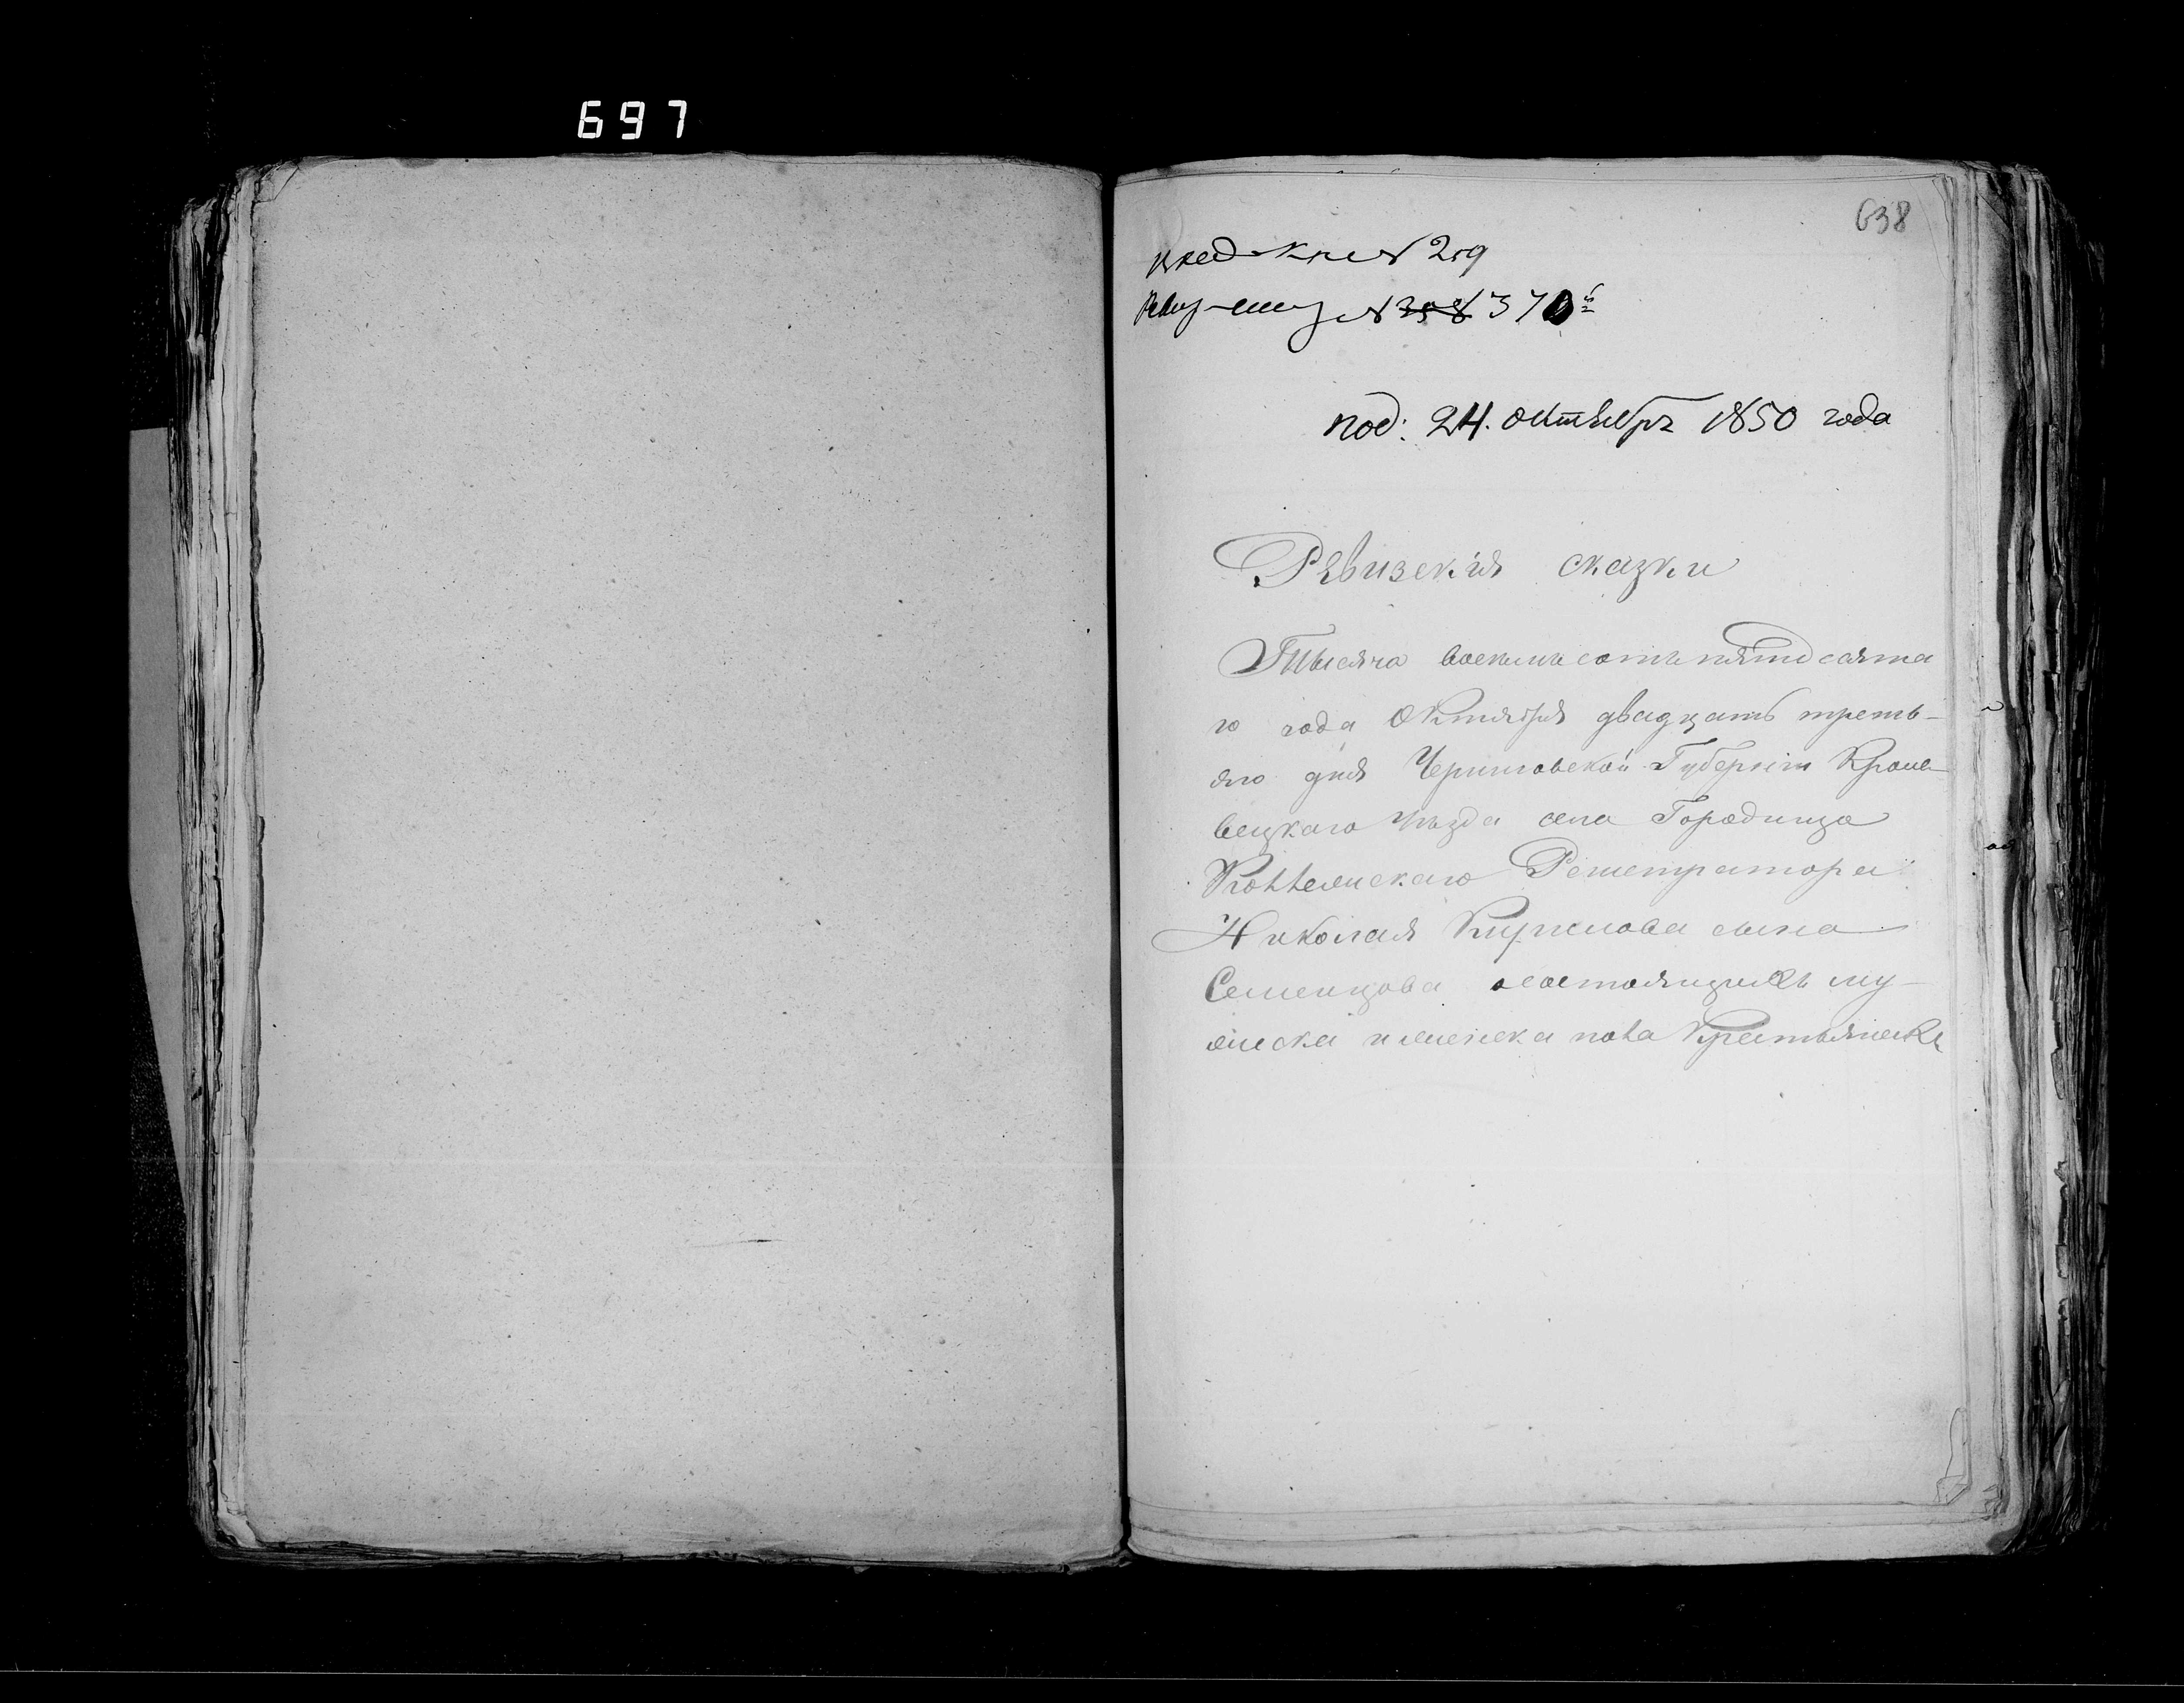 697
638
№ 259
№ 358 370й
под: 24. октября 1850 года
Ревизския сказки
Тысяча восемьсотъ пятдесята
го года Октября двадцать треть-
яго дня Черниговской Губерніи Кроле-
вецкаго уѣзда села Городища
Коллежскаго Регистратора
Николая Кирилова сына
Семенцова о состоящихъ му-
жеска и женска пола Крестьянахъ